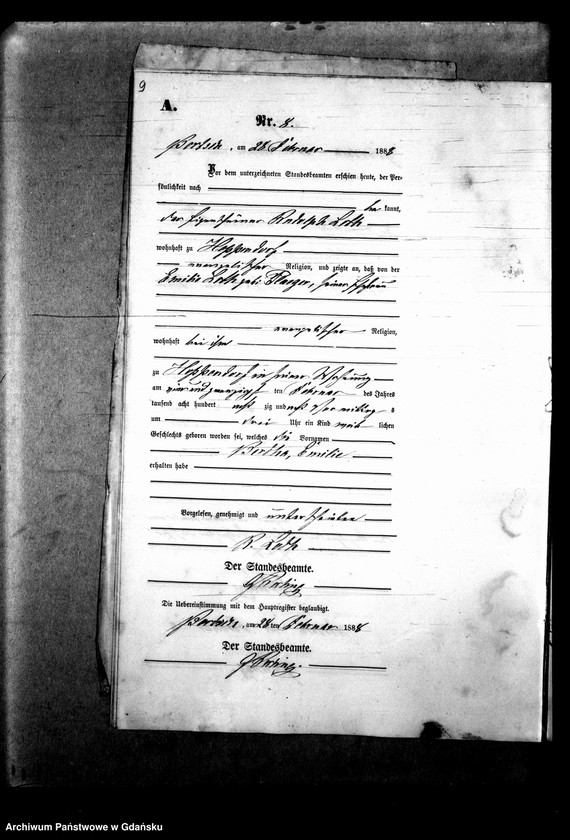 9
A.
Nr. 8.
am 28 Februar 1888
Vor dem unterzeichneten Standesbeamten erschien heute, der Per-
sönlichkeit nach
be kannt,
der Eigenthümer Rudolph Loth
wohnhaft zu Hoppendorf
evangelischer Religion, und zeigte an, daß von der
Emilie Loth geb:
evangelischer Religion,
wohnhaft bei ihm
zu Hoppendorf in seiner Wohnung
am vier und zwanzigsten ten Februar des Jahres
tausend acht hundert acht zig und acht Vormittag s
um drei Uhr ein Kind weib lichen
Geschlechts geboren worden sei, welches die Vornamen
Bertha, Emilie
erhalten habe
Vorgelesen, genehmigt und unterschrieben
R. Loth
Der Standesbeamte.
Die Uebereinstimmung mit dem Hauptregister beglaubigt.
am 28 ten Februar 1888
Der Standesbeamte.
Archiwum Państwowe w Gdańsku